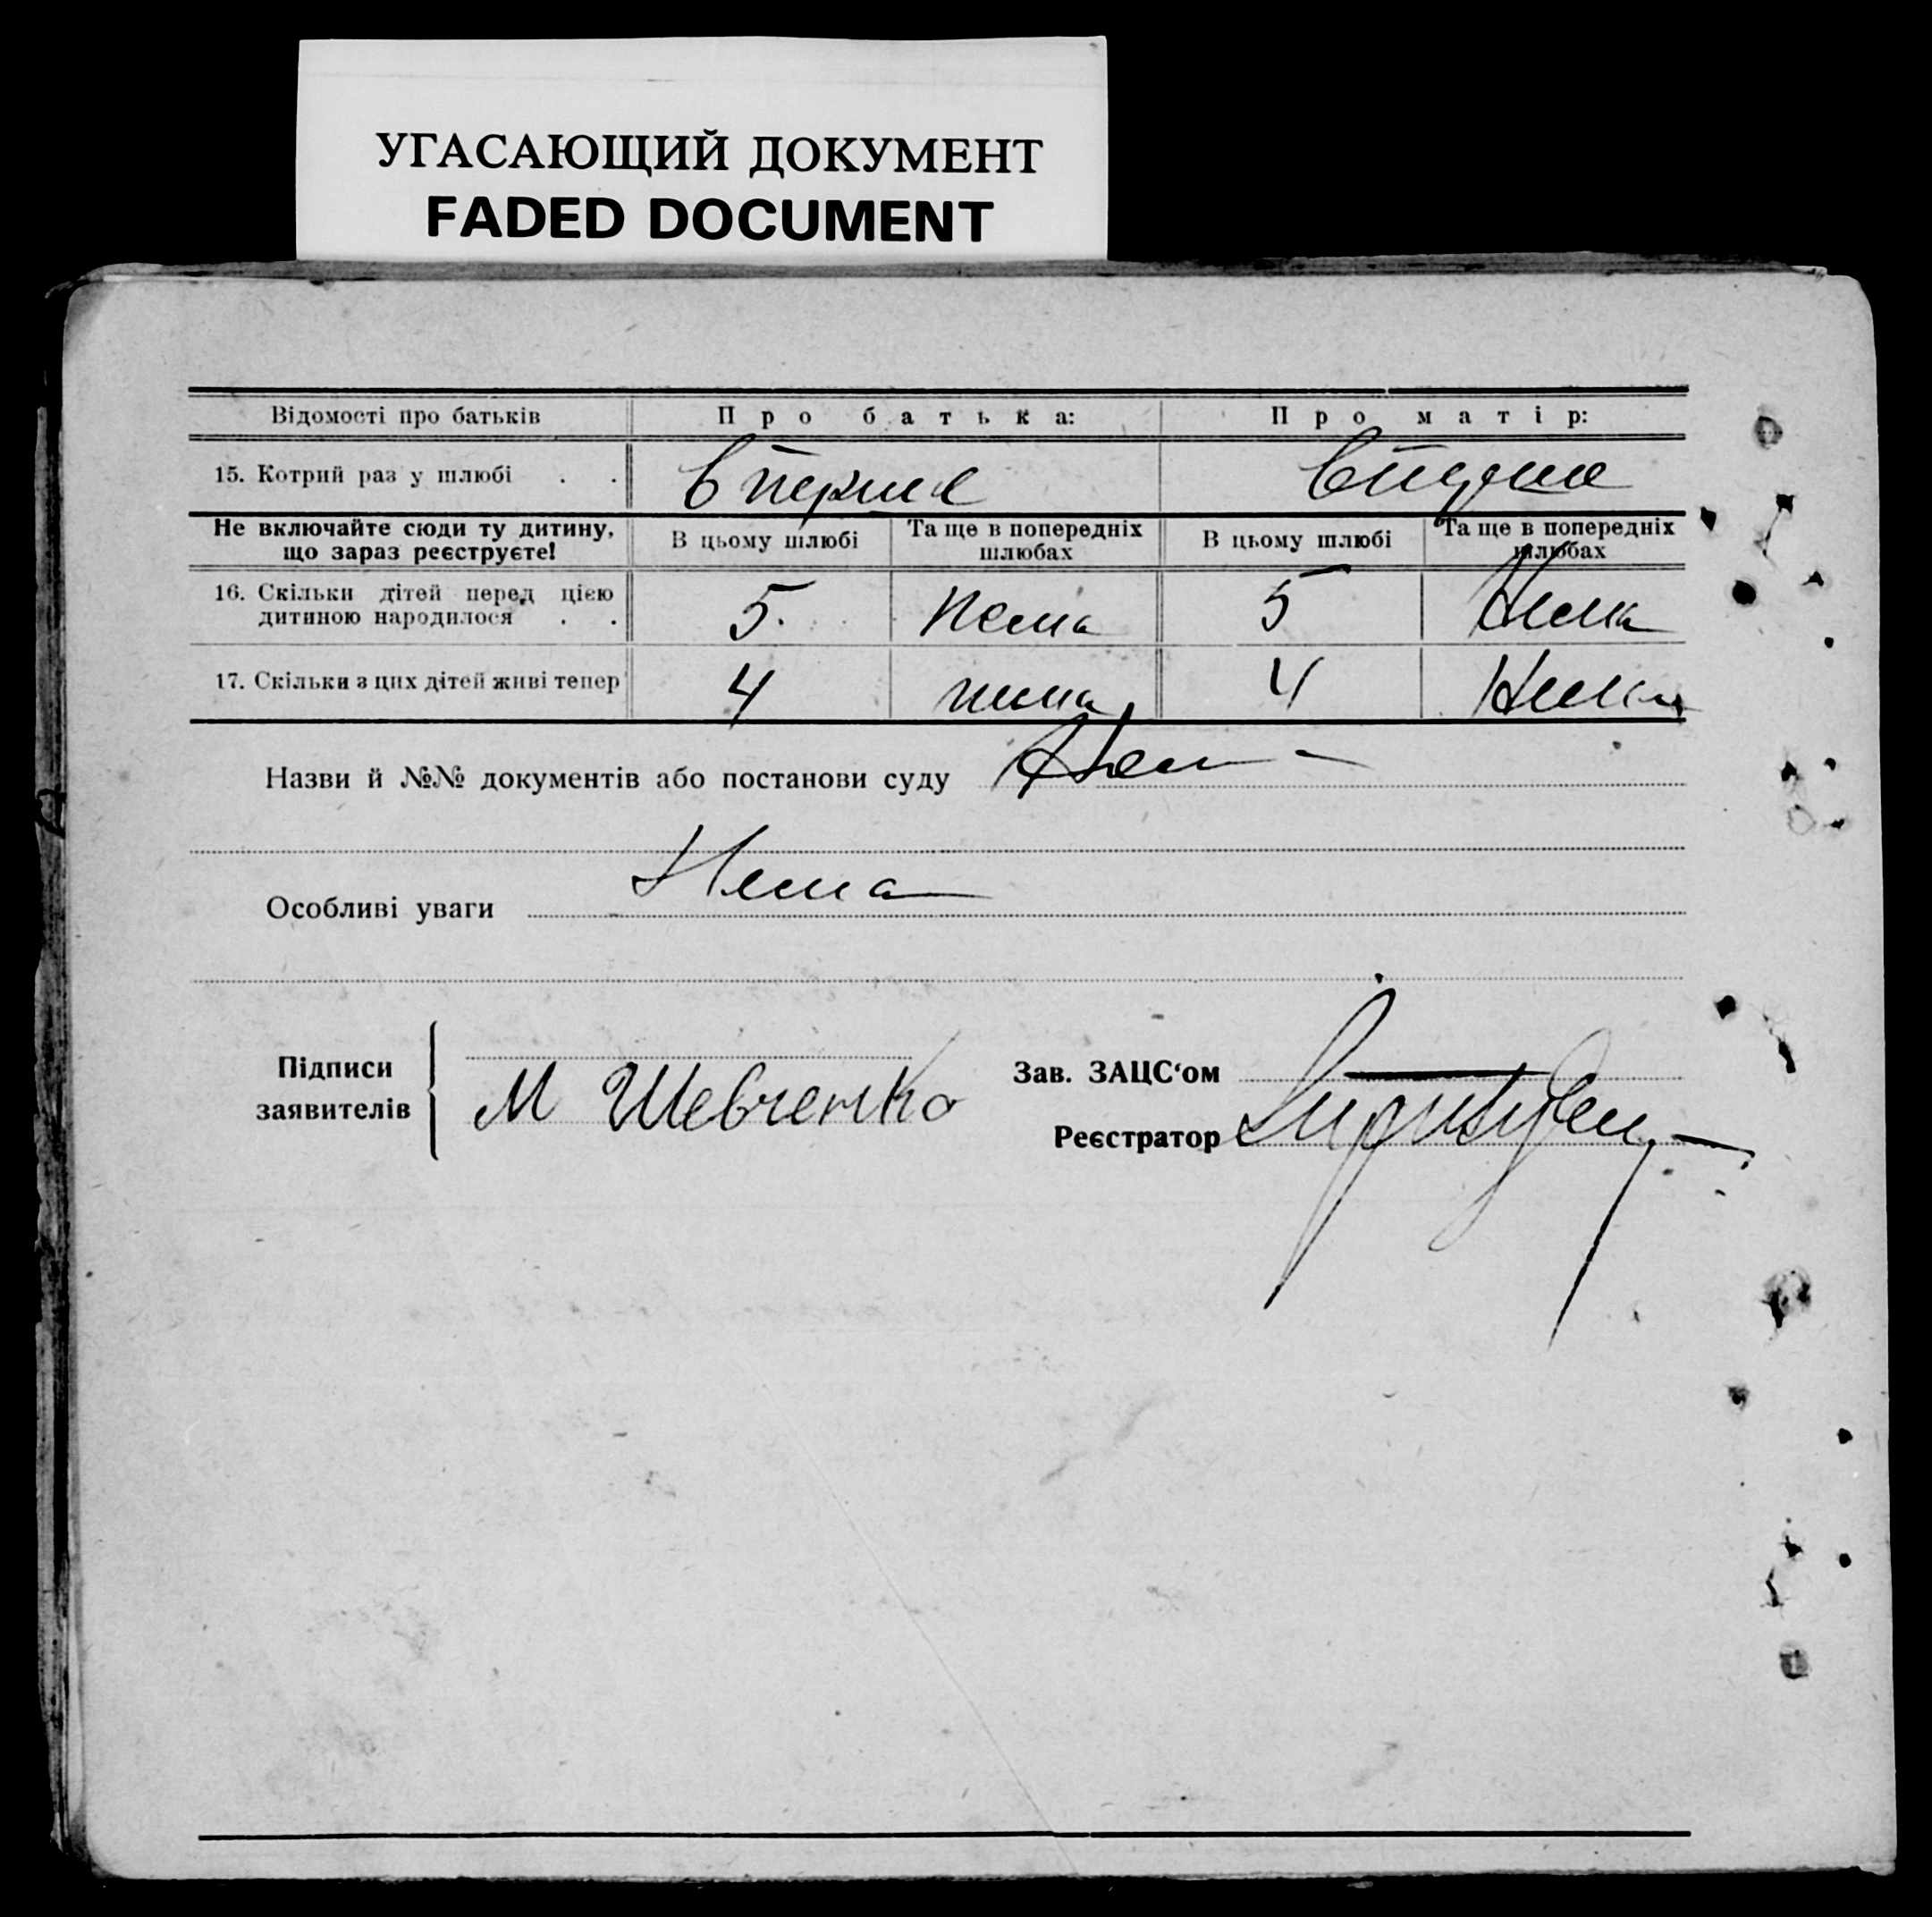 УГАСАЮЩИЙ ДОКУМЕНТ
FADED DOCUMENT
Відомості про батьків Про батька: Про матір:
15. Котрий раз у шлюбі . . вперше вперше
Не включайте сюди ту дитину, що зараз реєструєте! В цьому шлюбі Та ще в попередніх шлюбах В цьому шлюбі Та ще в попередніх шлюбах
16. Скільки дітей перед цією
дитиною народилося . . 5. нема 5 Нема
17. Скільки з цих дітей живі тепер 4 нема 4 Нема
Назви й №№ документів або постанови суду
Особливі уваги Нема
Підписи заявителів М Шевченко
Зав. ЗАЦС‘ом
Реєстратор